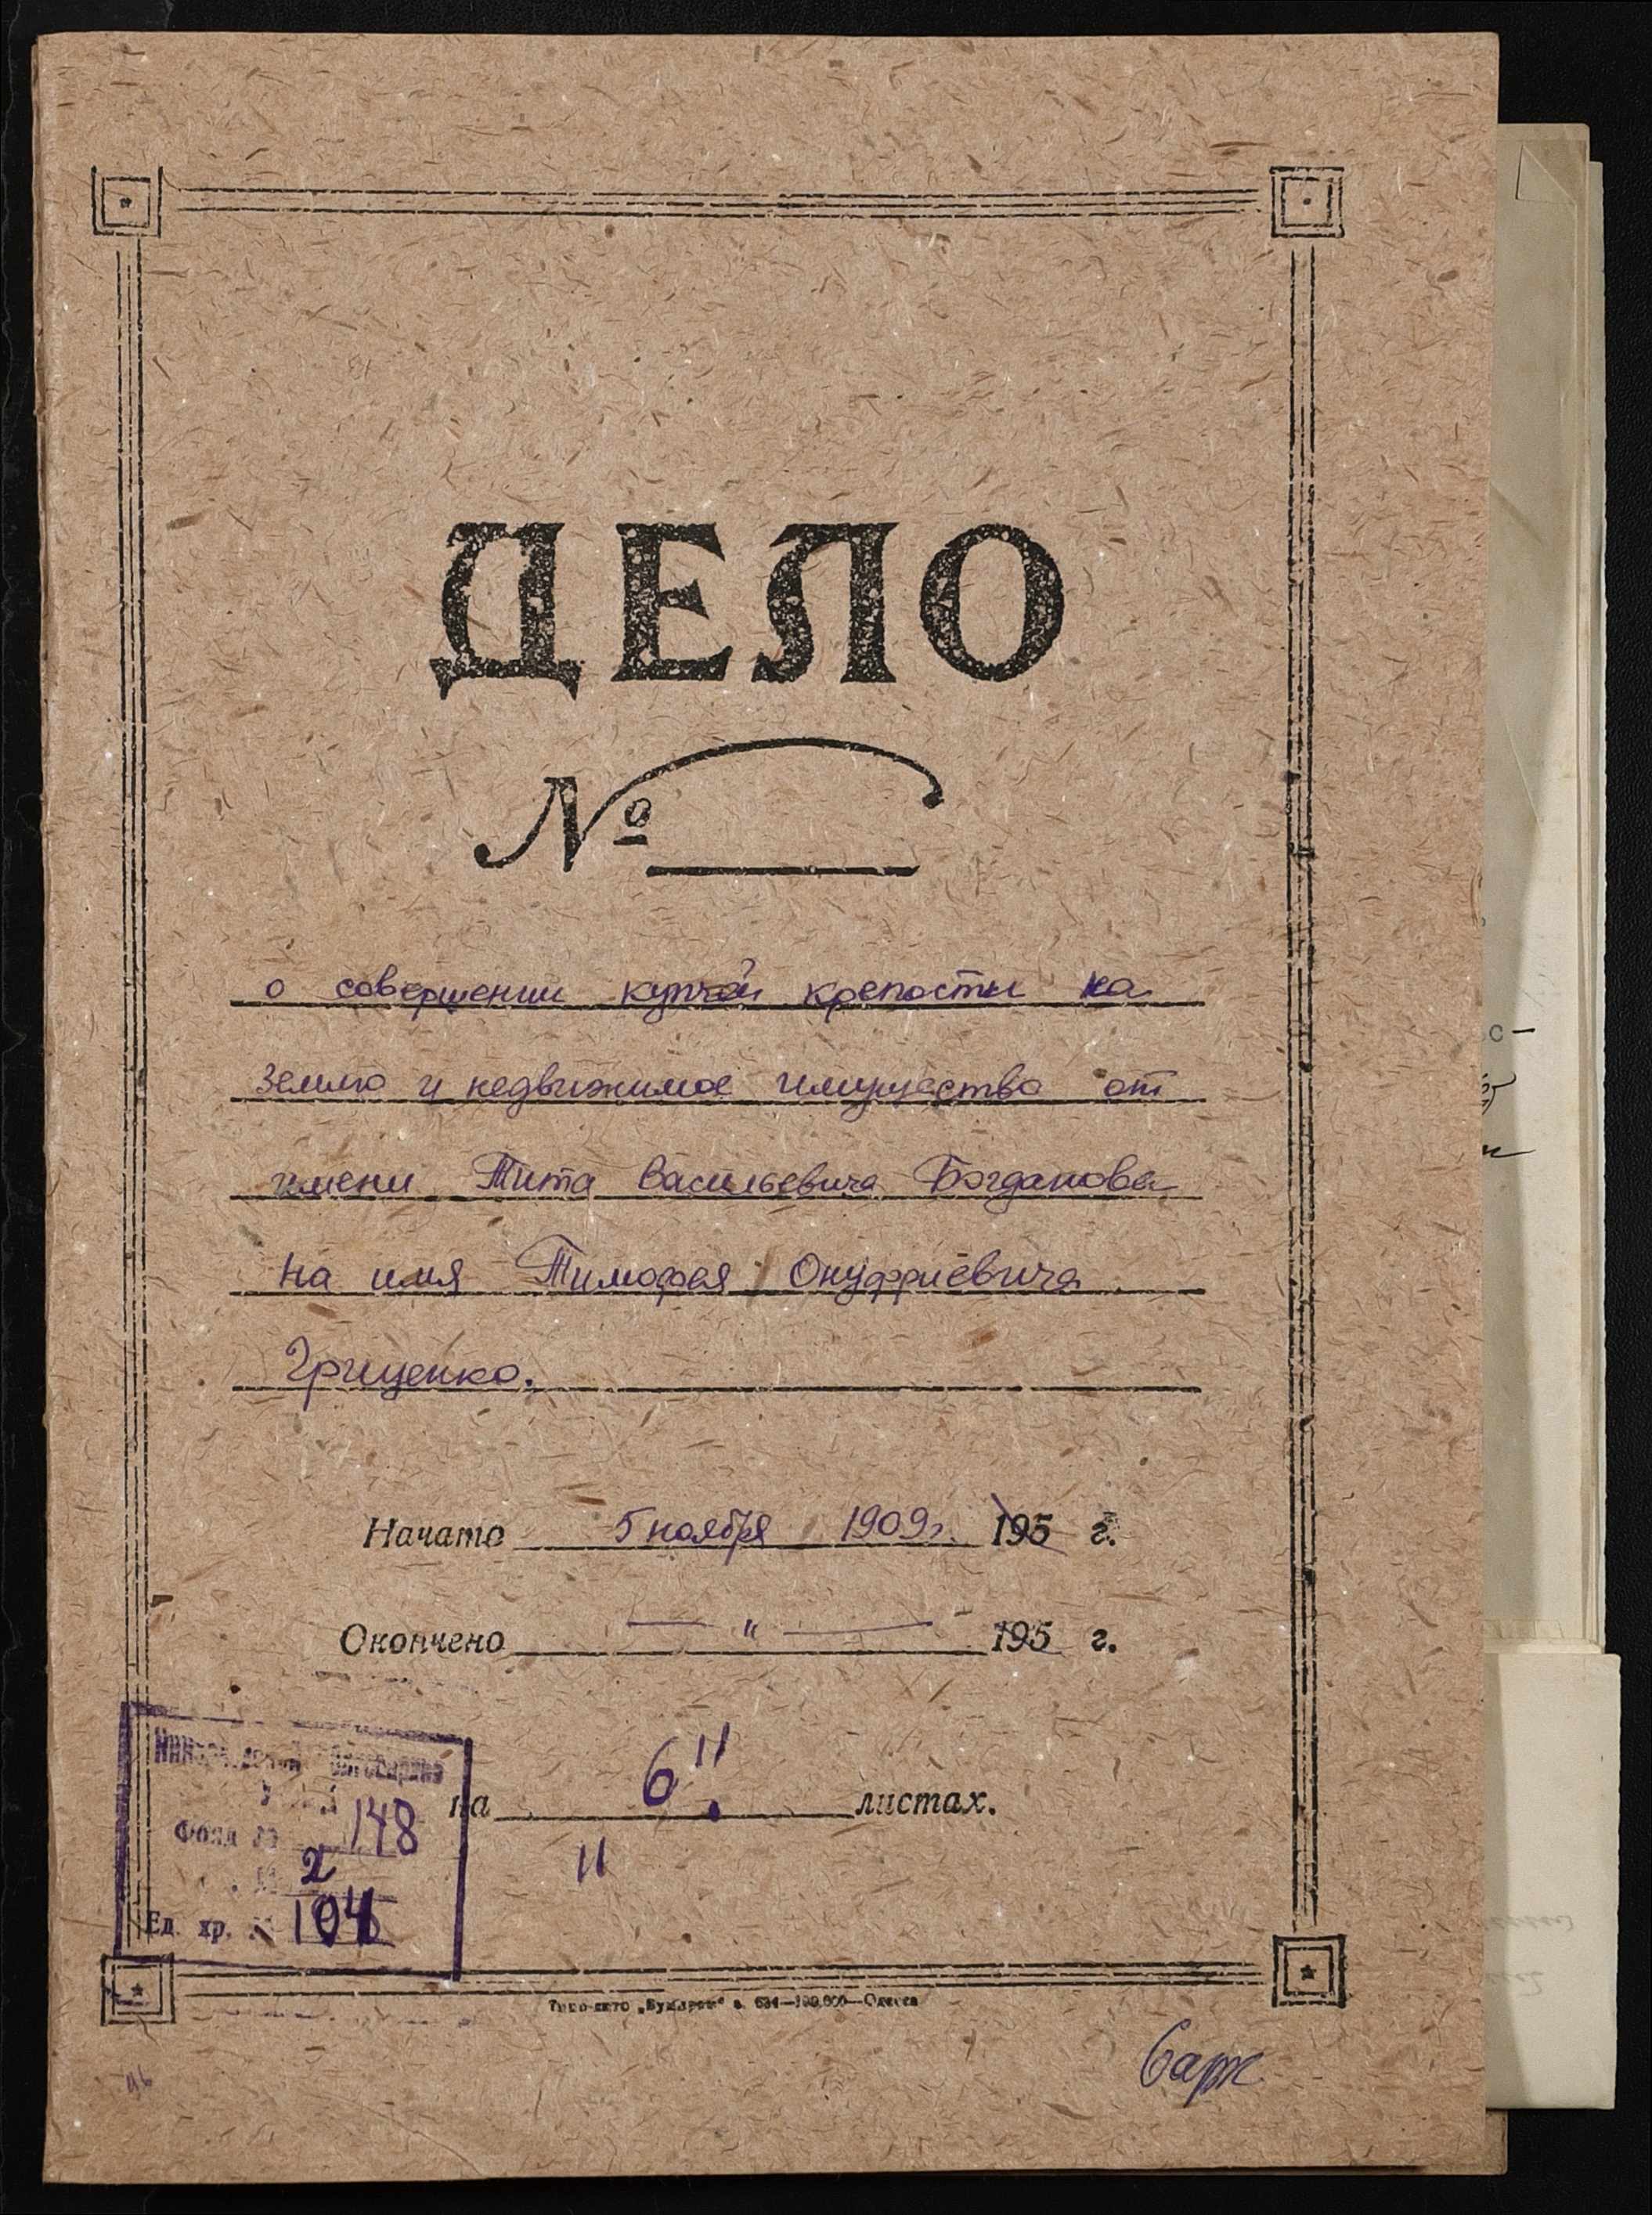 ДЕЛО
№
о совершении купчей крепости на
землю и недвижимое имущество от
имени Тита Васильевича Богданова
на имя Тимофея Онуфриевича
Гриценко.
Начато 5 ноября 1909г. 195 г.
Окончено — " — 195 г.
на 6" листах.
"
Фонд № 148
2
Ед. хр. № 104
Одесса